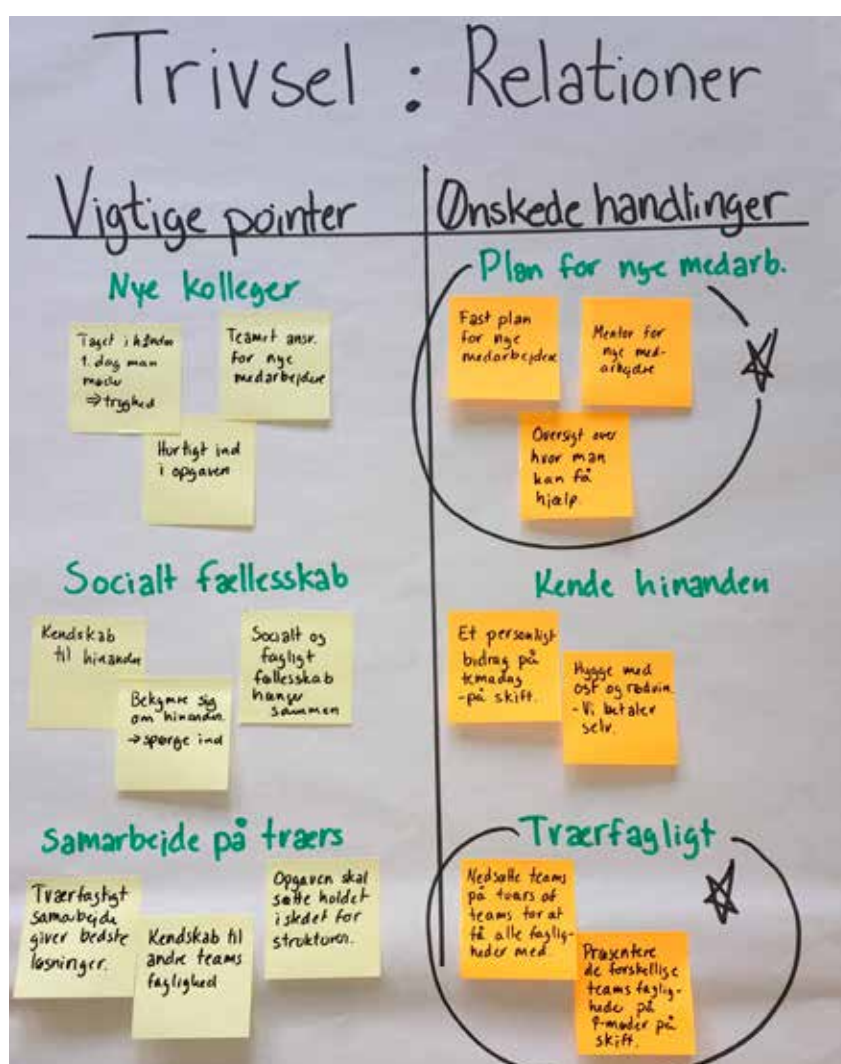 Trivsel : Relationer
Vigtige pointer
Nye kolleger
Taget i hånden
1. dag man
møder
⇒ tryghed
Teamet ansv.
for nye
medarbejdere
Hurtigt ind
i opgaven
Socialt fællesskab
Kendskab
til hinanden
Bekymre sig
om hinanden.
→ spørge ind
Socialt og
fagligt
fællesskab
hænger
sammen
Samarbejde på tværs
Tværfagligt
samarbejde
giver bedste
løsninger.
Kendskab til
andre teams
faglighed
Opgaven skal
sætte holdet
i stedet for
strukturen.
Ønskede handlinger
Plan for nye medarb.
Fast plan
for nye
medarbejdere
Mentor for
nye med-
arbejdere
Oversigt over
hvor man
kan få
hjælp.
Kende hinanden
Et personligt
bidrag på
temadag
- på skift.
Hygge med
ost og rødvin.
- Vi betaler
selv.
Tværfagligt
Nedsætte teams
på tværs af
teams for at
få alle faglig-
heder med.
Præsentere
de forskellige
teams faglig-
hede på
P-møder på
skift.